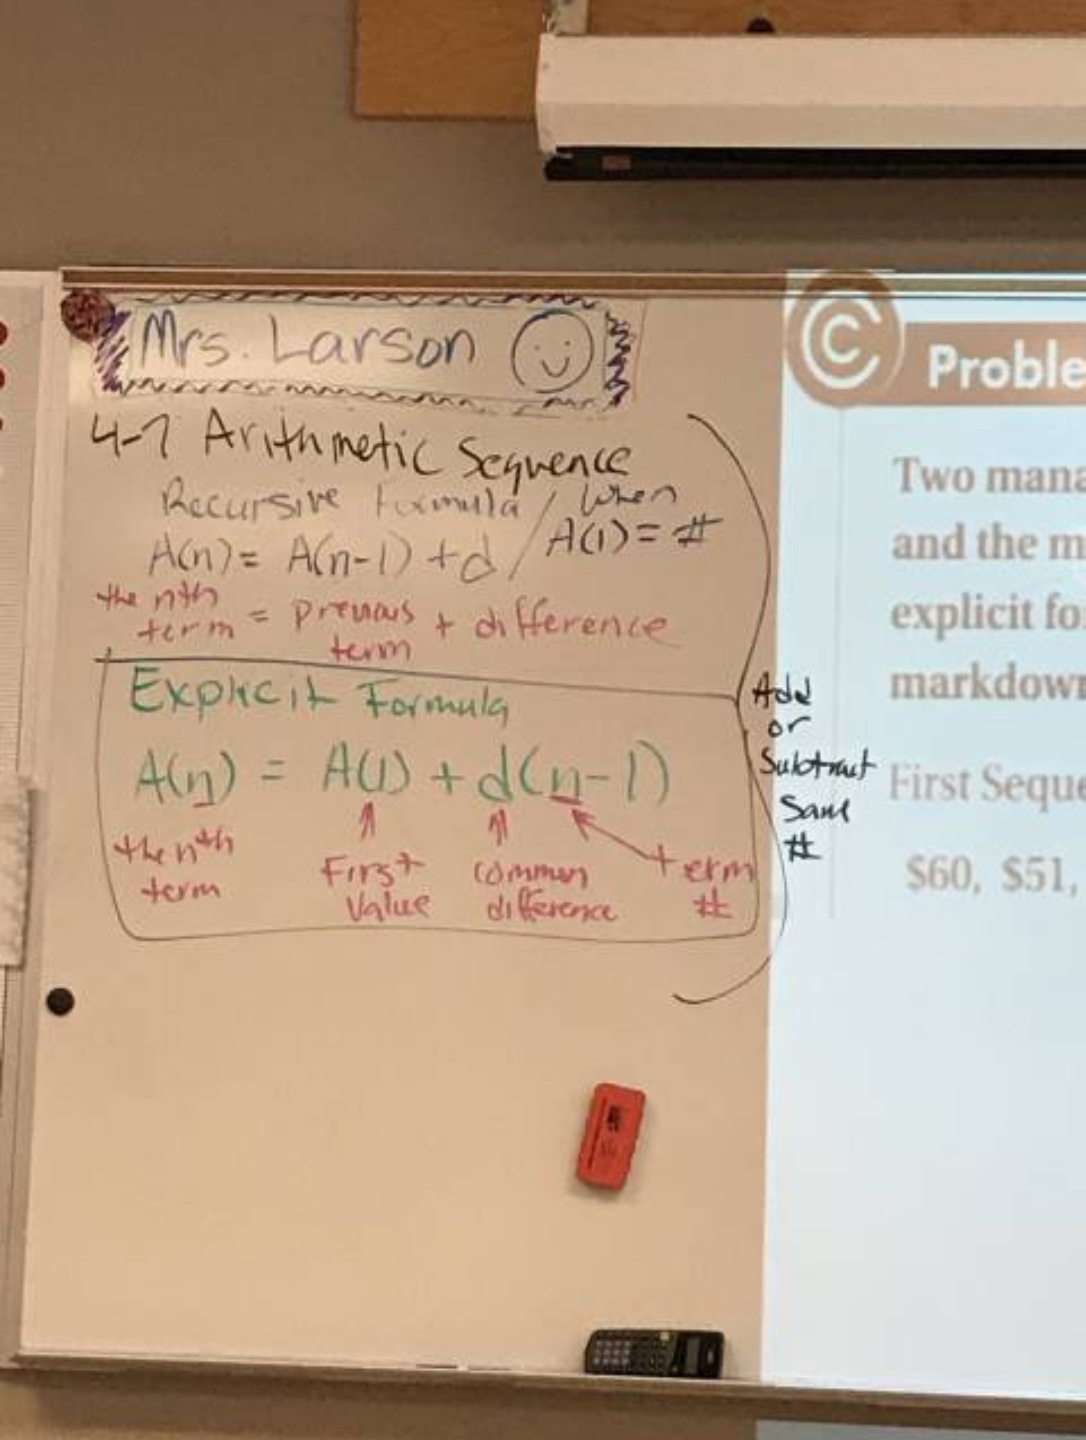 Mrs. Larson
4-7 Arithmetic Sequence
Recursive Formula / When
A(n) = A(n-1) + d / A(1) = #
the nth term = previous term + difference
Explicit Formula
A(n) = A(1) + d(n-1)
the nth term
First Value
common difference
term #
Add
or
Subtract
Same
#
©
Proble
Two mana
and the m
explicit fo
markdown
First Seque
$60, $51,